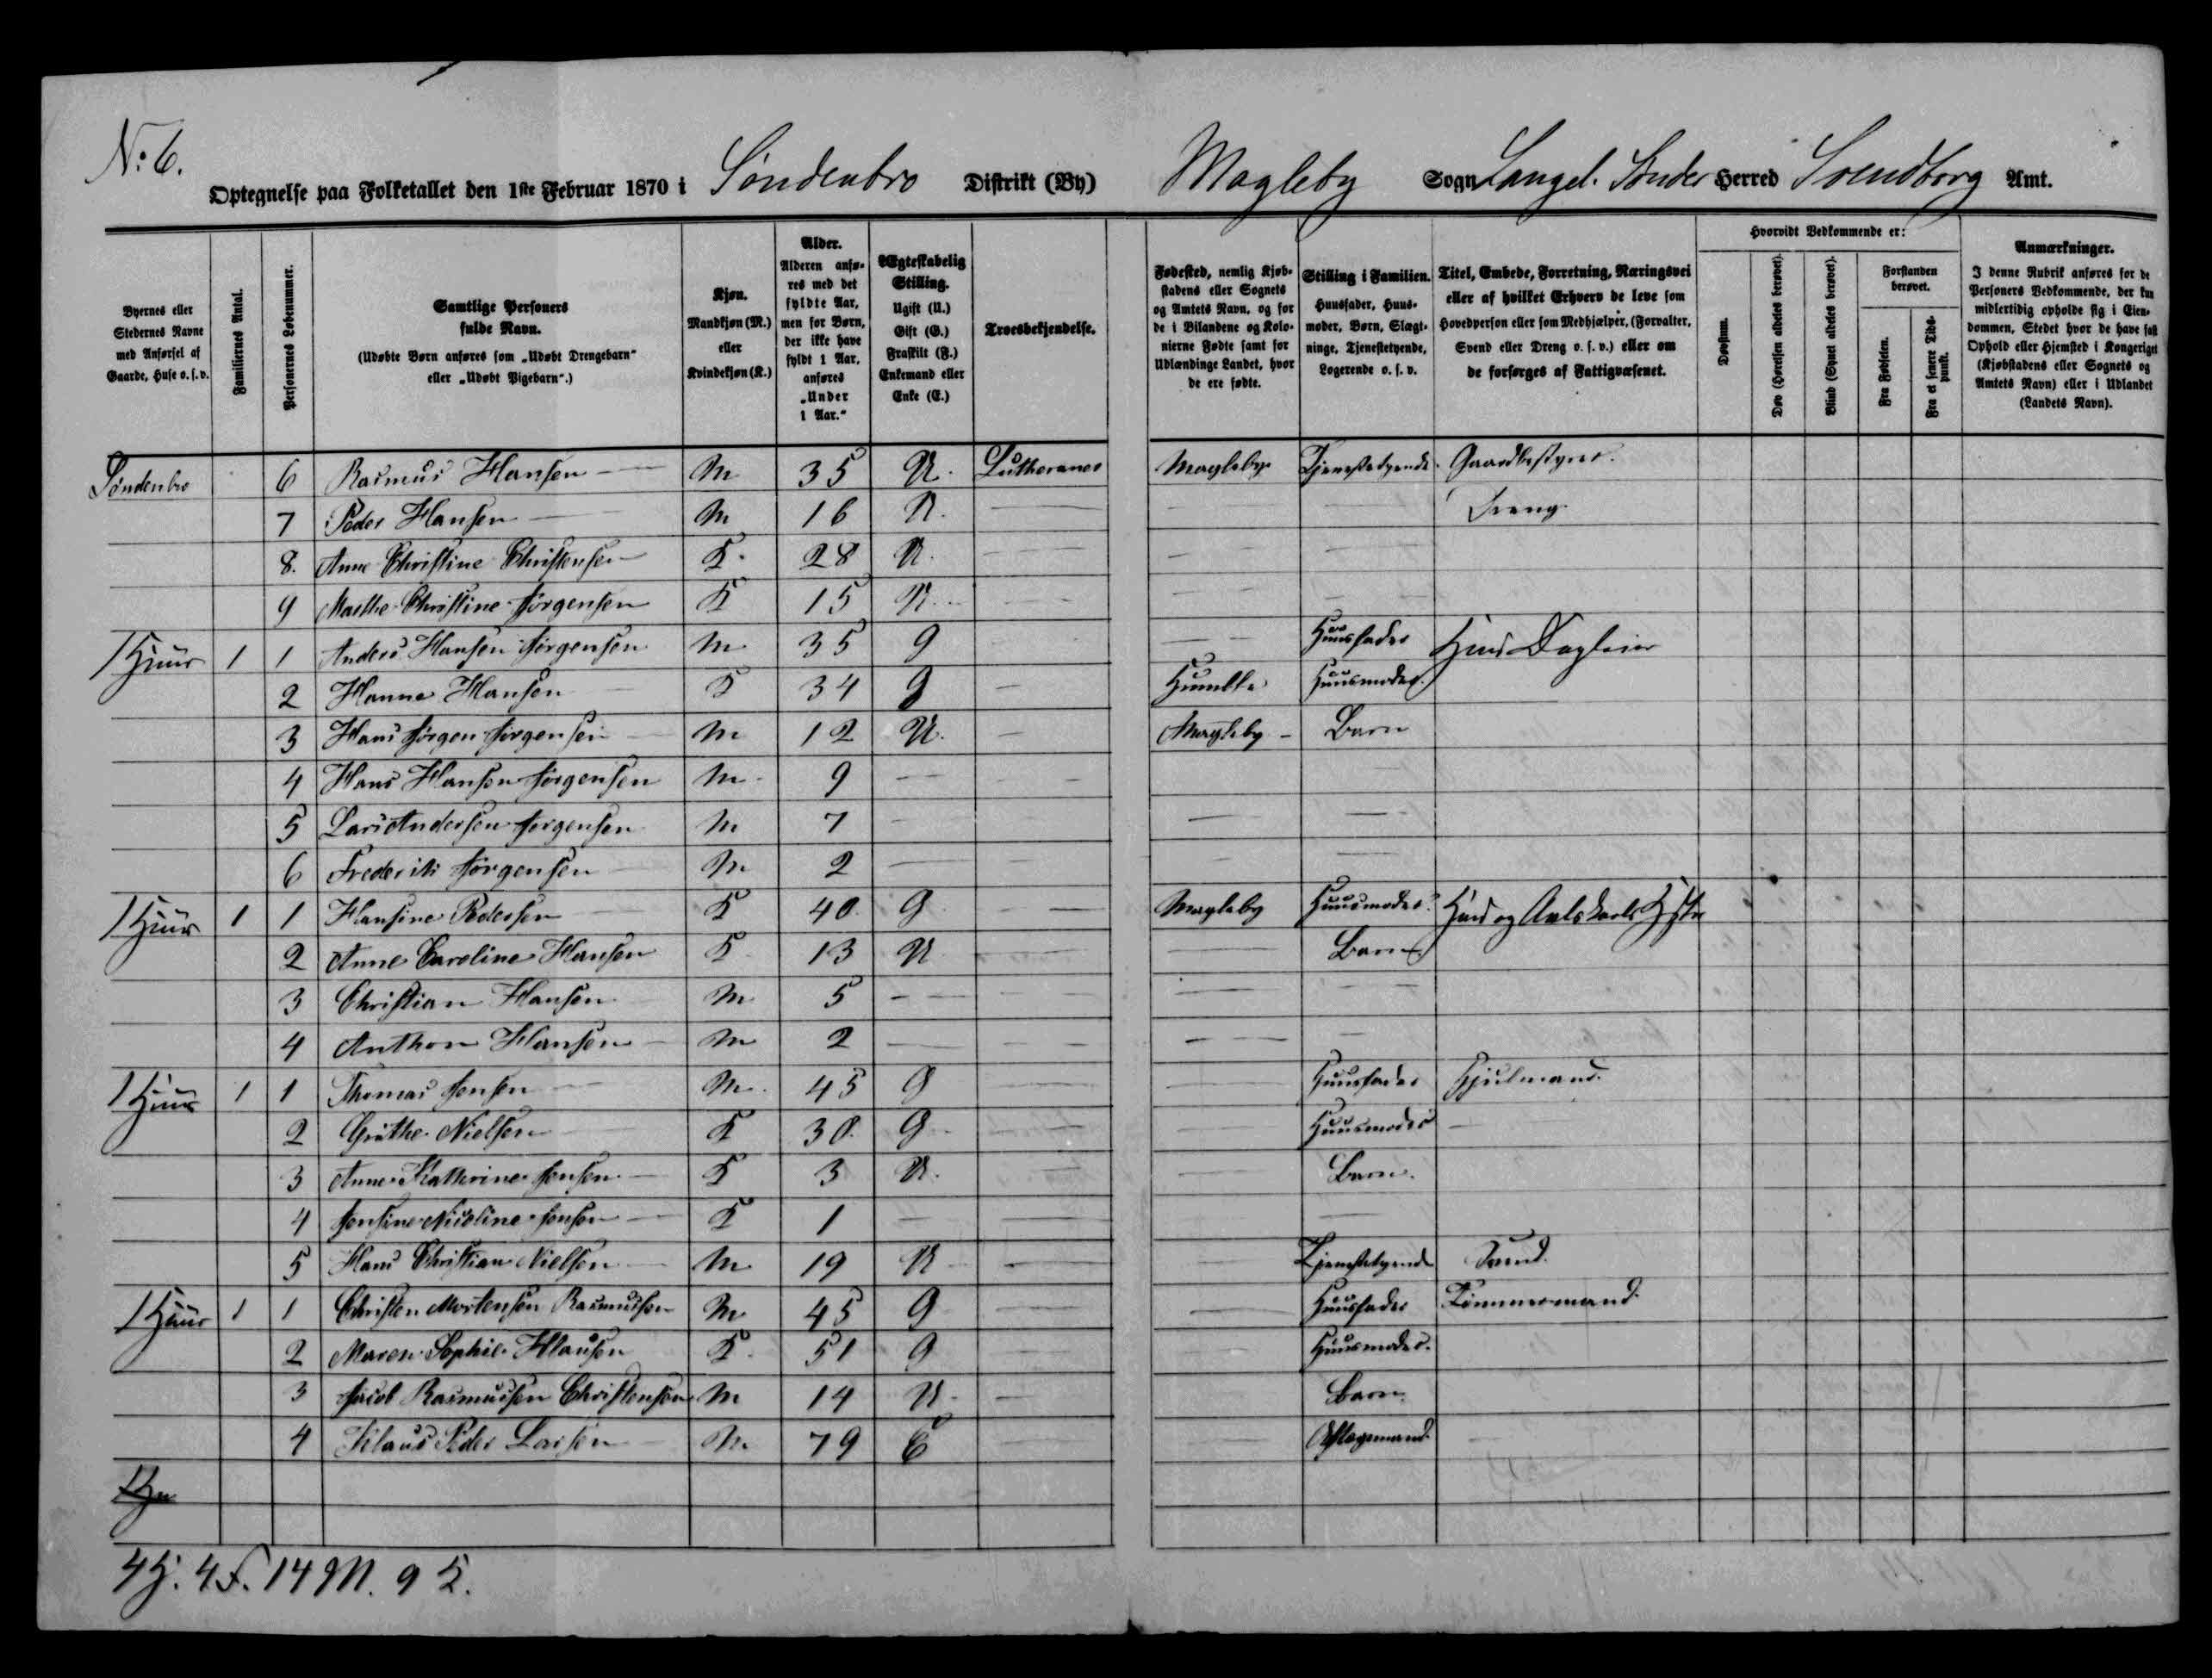 No: 6.
Optegnelse paa Folketallet den 1ste Februar 1870 i Søndenbro Distrikt (By) Magleby Sogn Langel. Sønder Herred Svendborg Amt.
Byernes eller Stedernes Navne med Anførsel af Gaarde, Huse o. s. v.
Familiernes Antal.
Personernes Løbenummer.
Samtlige Personers fulde Navn.
(Udøbte Børn anføres som „Udøbt Drengebarn“ eller „Udøbt Pigebarn“.)
Kjøn.
Mandkjøn (M.) eller Kvindekjøn (K.)
Alder.
Alderen anføres med det fyldte Aar, men for Børn, der ikke have fyldt 1 Aar, anføres „Under 1 Aar.“
Ægteskabelig Stilling.
Ugift (U.) Gift (G.) Fraskilt (F.) Enkemand eller Enke (E.)
Troesbekjendelse.
Fødested, nemlig Kjøbstadens eller Sognets og Amtets Navn, og for de i Bilandene og Kolonierne Fødte samt for Udlændinge Landet, hvor de ere fødte.
Stilling i Familien.
Huusfader, Huusmoder, Børn, Slægtninge, Tjenestetyende, Logerende o. s. v.
Titel, Embede, Forretning, Næringsvei eller af hvilket Erhverv de leve som Hovedperson eller som Medhjælper, (Forvalter, Svend eller Dreng o. s. v.) eller om de forsørges af Fattigvæsenet.
Hvorvidt Vedkommende er:
Døvstum.
Døv (Hørelsen aldeles berøvet).
Blind (Synet aldeles berøvet).
Forstanden berøvet.
Fra Fødselen.
Fra et senere Tidspunkt.
Anmærkninger.
I denne Rubrik anføres for de Personers Vedkommende, der kun midlertidig opholde sig i Eiendommen, Stedet hvor de have fast Ophold eller Hjemsted i Kongeriget (Kjøbstadens eller Sognets og Amtets Navn) eller i Udlandet (Landets Navn).
Søndenbro 6 Rasmus Hansen M 35 U. Lutheraner Magleby Tjenestetyende Gaardbestyrer.
7 Peder Hansen M 16 U. Dreng.
8. Anne Christine Christensen K. 28 U.
9 Marthe Christine Jørgensen K 15 U.
1 Huus 1 1 Anders Hansen Jørgensen M 35 G Huusfader Huus Dagleier
2 Hanne Hansen K 34 G Humble Huusmoder.
3 Hans Jørgen Jørgensen M 12 U. Magleby Barn
4 Hans Hansen Jørgensen M 9
5 Lars Andersen Jørgensen M 7
6 Frederik Jørgensen M 2
1 Huus 1 1 Hansine Pedersen K 40 G Magleby Huusmoder Huus og
2 Anne Caroline Hansen K 13 U Barn
3 Christian Hansen M 5
4 Anthon Hansen M 2
1 Huus 1 1 Thomas Jensen M. 45 G Huusfader Hjulmand.
2 Grethe Nielsen K 30. G Huusmoder
3 Anne Kathrine Jensen K 3 U. Barn.
4 Jensine Nicoline Jensen K 1
5 Hans Christian Nielsen M 19 U Tjenestetyende Svend.
1 Huus 1 1 Christen Mortensen Rasmussen M 45 G Huusfader Tømmermand.
2 Maren Sophie Hansen K. 51 G Huusmoder.
3 Jacob Rasmussen Christensen M 14 U Barn.
4 Klaus Peder Larsen M. 79 E Aftægtsmand.
4 H. 4 F. 14 M. 9 K.